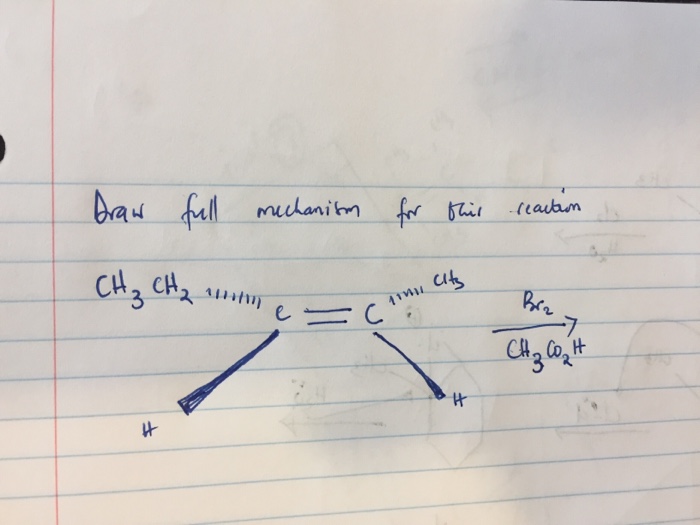 Draw full mechanism for this reaction
CH3 CH2 C = C CH3 Br2
CH3 CO2H
H H